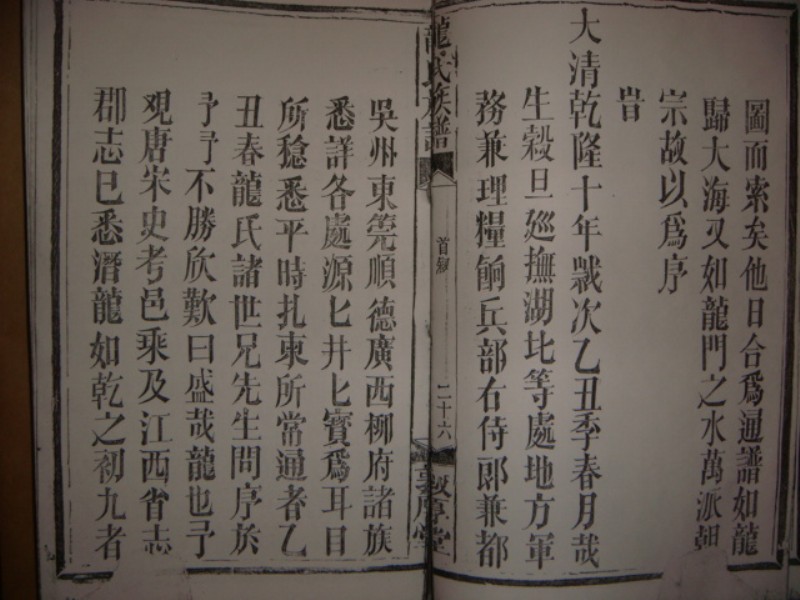 圖而索矣他日合為通譜如龍
歸大海又如龍門之水萬派朝
宗故以為序
旹
大清乾隆十年歲次乙丑季春月哉
生榖旦廵撫湖北等處地方軍
務兼理糧餉兵部右侍郎兼都
龍氏族譜
首敘
二十六
敦厚堂
吳州東筦順德廣西柳府諸族
悉詳各處源匕井匕實為耳目
所稔悉平時扎柬所常通者乙
丑春龍氏諸世兄先生問序於
予予不勝欣歎曰盛哉龍也予
观唐宋史考邑乘及江西省志
郡志已悉潛龍如乾之初九者